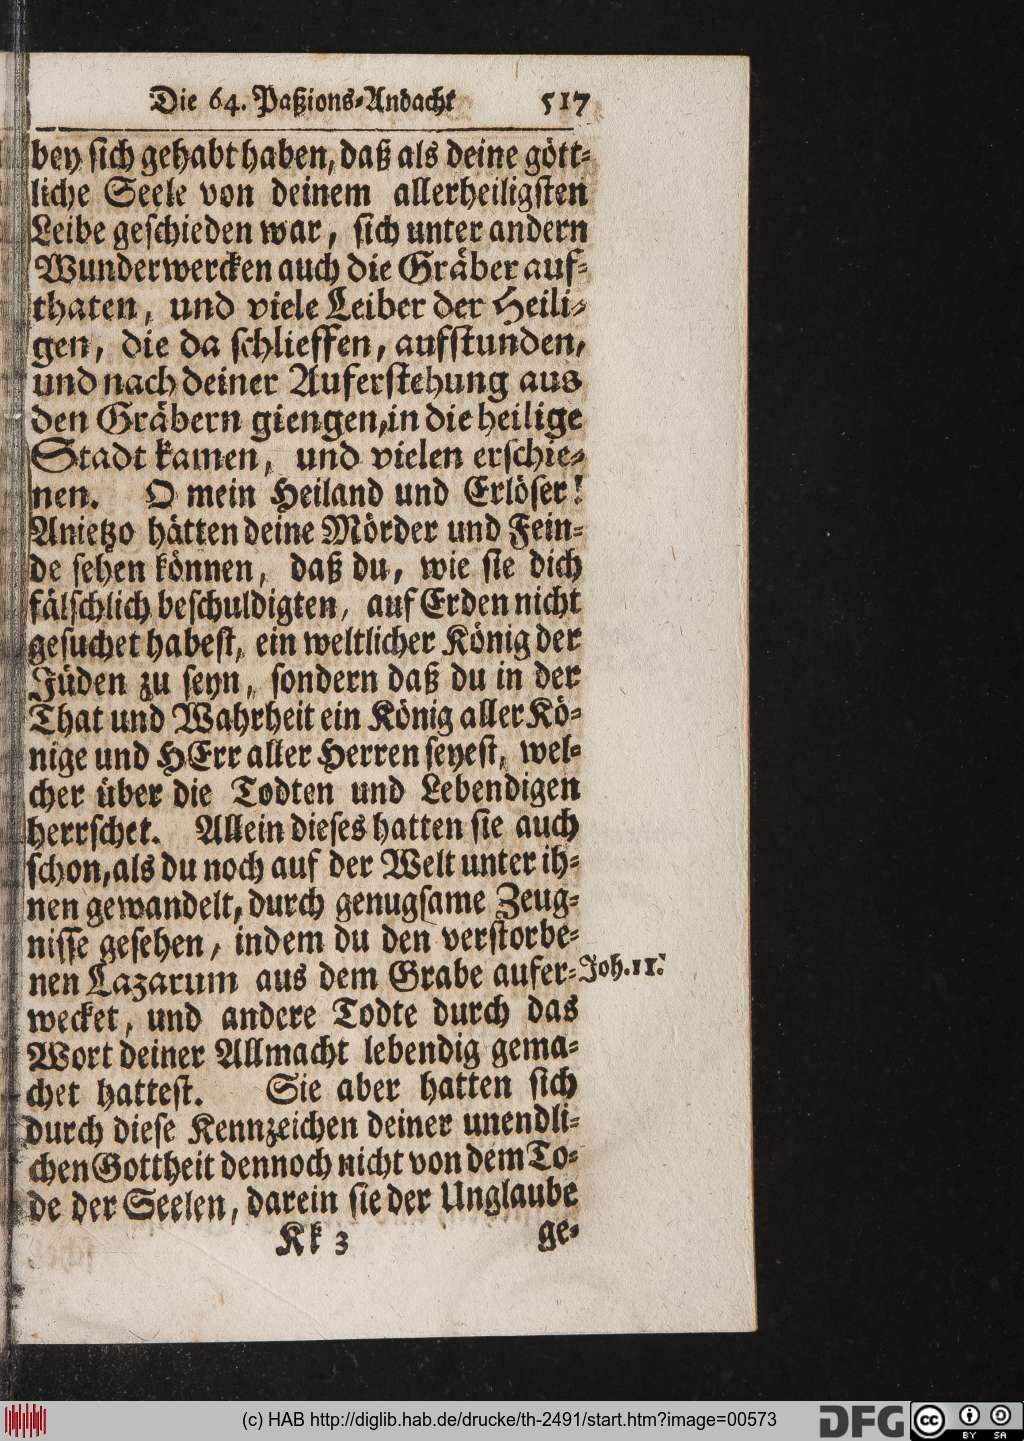 Die 64. Paßions-Andacht 517
bey sich gehabt haben, daß als deine gött-
liche Seele von deinem allerheiligsten
Leibe geschieden war, sich unter andern
Wunderwercken auch die Gräber auf-
thaten, und viele Leiber der Heili-
gen, die da schlieffen, aufstunden,
und nach deiner Auferstehung aus
den Gräbern giengen, in die heilige
Stadt kamen, und vielen erschie-
nen. O mein Heiland und Erlöser!
Anietzo hätten deine Mörder und Fein-
de sehen können, daß du, wie sie dich
fälschlich beschuldigten, auf Erden nicht
gesuchet habest, ein weltlicher König der
Jüden zu seyn, sondern daß du in der
That und Wahrheit ein König aller Kö-
nige und HErr aller Herren seyest, wel-
cher über die Todten und Lebendigen
herrschet. Allein dieses hatten sie auch
schon, als du noch auf der Welt unter ih-
nen gewandelt, durch genugsame Zeug-
nisse gesehen, indem du den verstorbe-
nen Lazarum aus dem Grabe aufer- Joh. 11.
wecket, und andere Todte durch das
Wort deiner Allmacht lebendig gema-
chet hattest. Sie aber hatten sich
durch diese Kennzeichen deiner unendli-
chen Gottheit dennoch nicht von dem To-
de der Seelen, darein sie der Unglaube
Kk 3 ge-
(c) HAB http://diglib.hab.de/drucke/th-2491/start.htm?image=00573 DFG cc BY SA